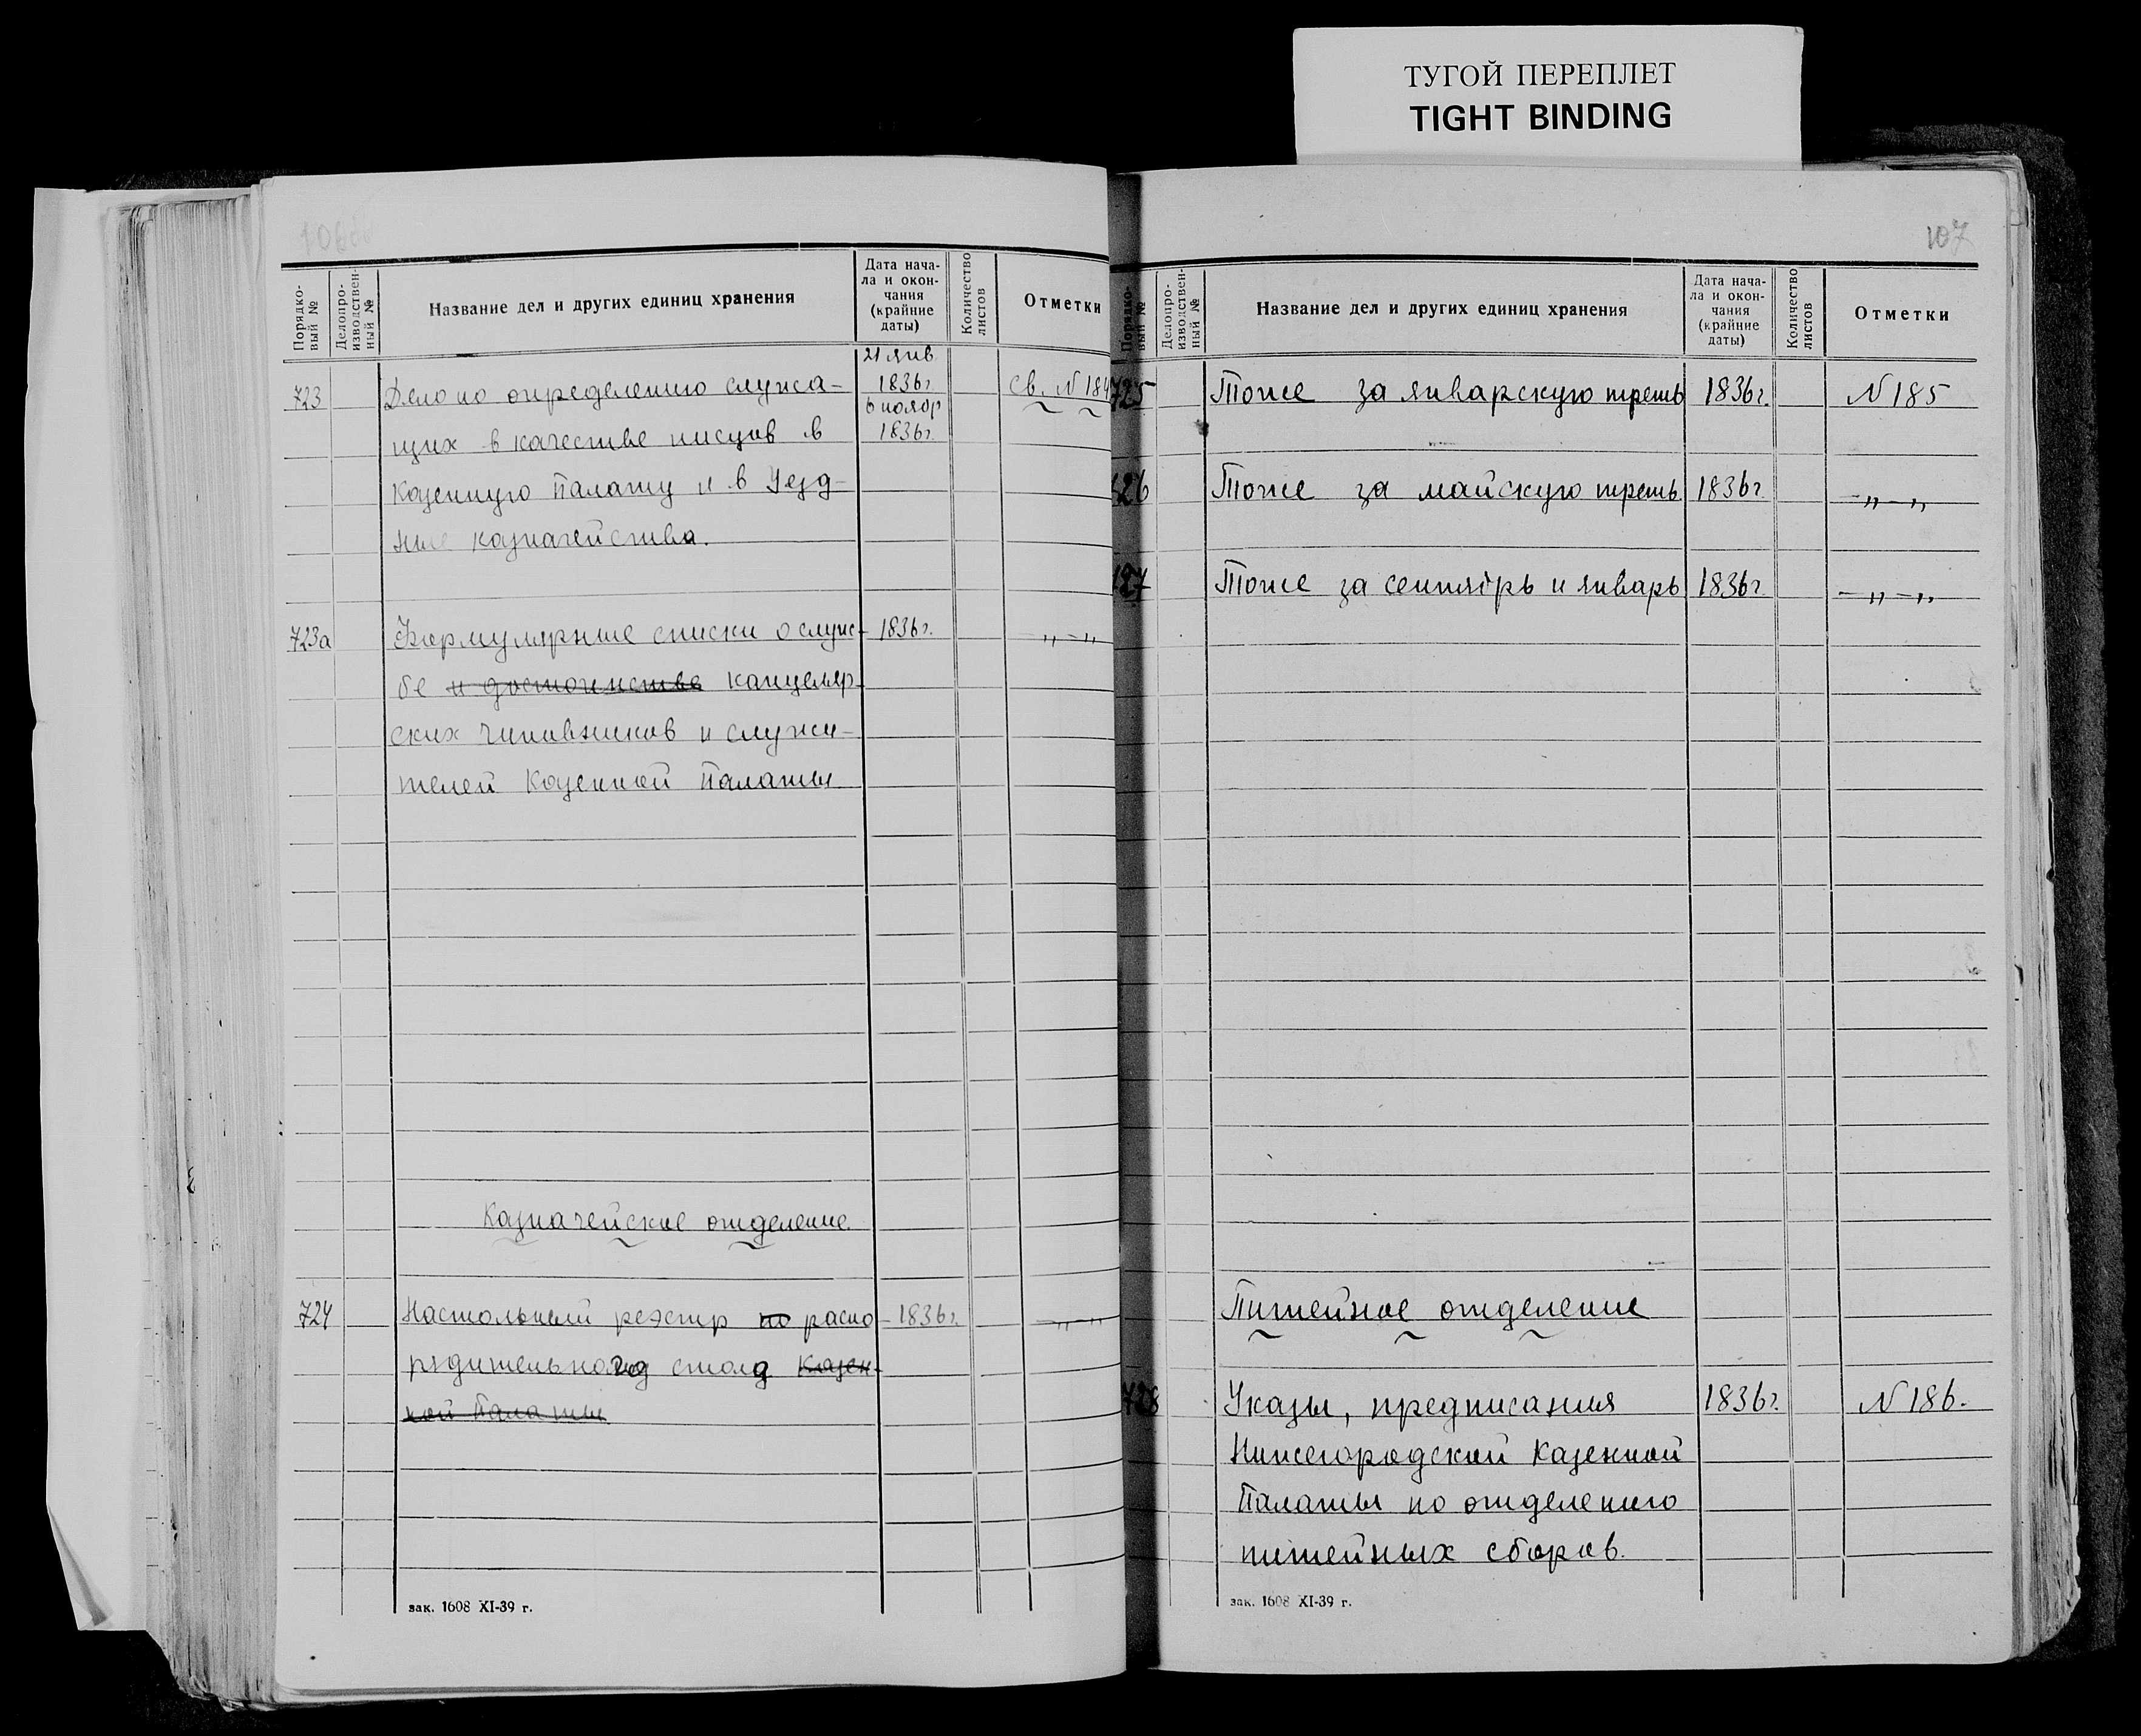 ТУГОЙ ПЕРЕПЛЕТ
TIGHT BINDING
Порядко-
вый №
Делопро-
изводствен-
ный №
Название дел и других единиц хранения
Дата нача-
ла и окон-
чания
(крайние
даты)
Количество
листов
Отметки
21 янв
723 Дело по определению служа- 1836г. св. N 184
6 ноябр
щих в качестве писцов в 1836г.
Казенную Палату и в Уезд-
ные казначейства.
723а Формулярные списки о служ- 1836г. — „ — „
бе и достоинстве канцеляр-
ских чиновников и служи-
телей Казенной Палаты
Казначейское отделение
724 Настольный реэстр по распо- 1836г. — „ — „
рядительного стола Казен-
ной Палаты
зак. 1608 XI-39 г.
107
Порядко-
вый №
Делопро-
изводствен-
ный №
Название дел и других единиц хранения
Дата нача-
ла и окон-
чания
(крайние
даты)
Количество
листов
Отметки
725 Тоже за январскую треть 1836г. N 185
726 Тоже за майскую треть 1836г. — „ — „
727 Тоже за сентябрь и январь 1836г. — „ — „
Питейное отделение
728 Указы, предписания 1836г. N 186.
Нижегородской Казенной
Палаты по отделению
питейных сборов.
зак. 1608 XI-39 г.